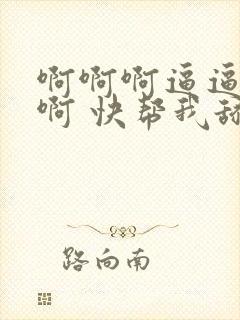 啊啊啊逼逼
啊 快帮我舔
路向南